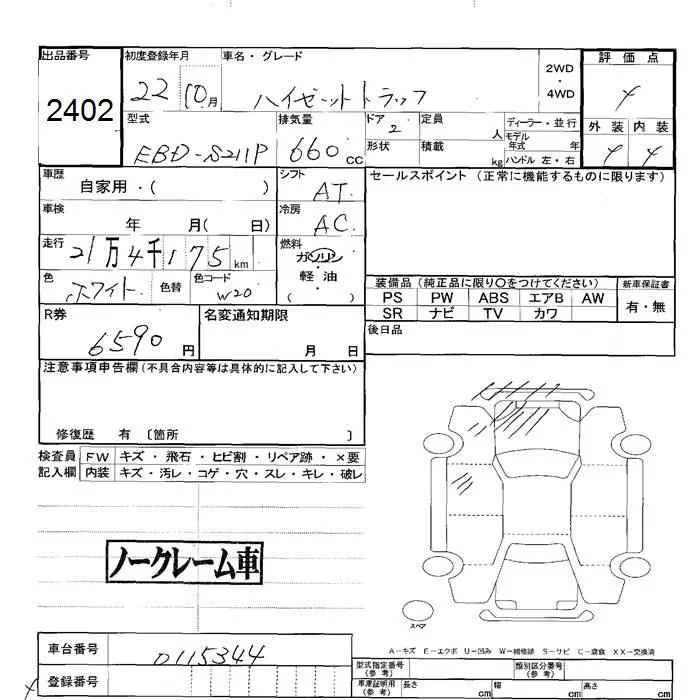 出品番号 初度登録年月 車名・グレード 2WD・4WD 評価点
2402 22 10月 ハイゼットトラック 4
型式 排気量 ドア 2 定員 人 ディーラー・並行 外装 内装
EBD-S211P 660cc 形状 積載 kg モデル年式 年 ハンドル 左・右 4 4
車歴 自家用・( ) シフト AT セールスポイント (正常に機能するものに限ります)
車検 年 月( 日) 冷房 AC
走行 21万4千175km 燃料 ガソリン・軽油 ( )
色 ホワイト 色替 色コード W20 装備品 (純正品に限り〇をつけてください) 新車保証書
PS PW ABS エアB AW 有・無
SR ナビ TV カワ
R券 6590円 名変通知期限 月 日 後日品
注意事項申告欄 (不具合内容等は具体的に記入して下さい)
修復歴 有 〔箇所 〕
検査員 FW キズ・飛石・ヒビ割・リペア跡・×要
記入欄 内装 キズ・汚レ・コゲ・穴・スレ・キレ・破レ
ノークレーム車
スペア
A-キズ E-エクボ U-凹み W-補修跡 S-サビ C-腐食 XX-交換済
車台番号 0115344 型式指定番号(参考) 類別区分番号(参考)
登録番号 車庫証明用(参考) 長さ cm 幅 cm 高さ cm